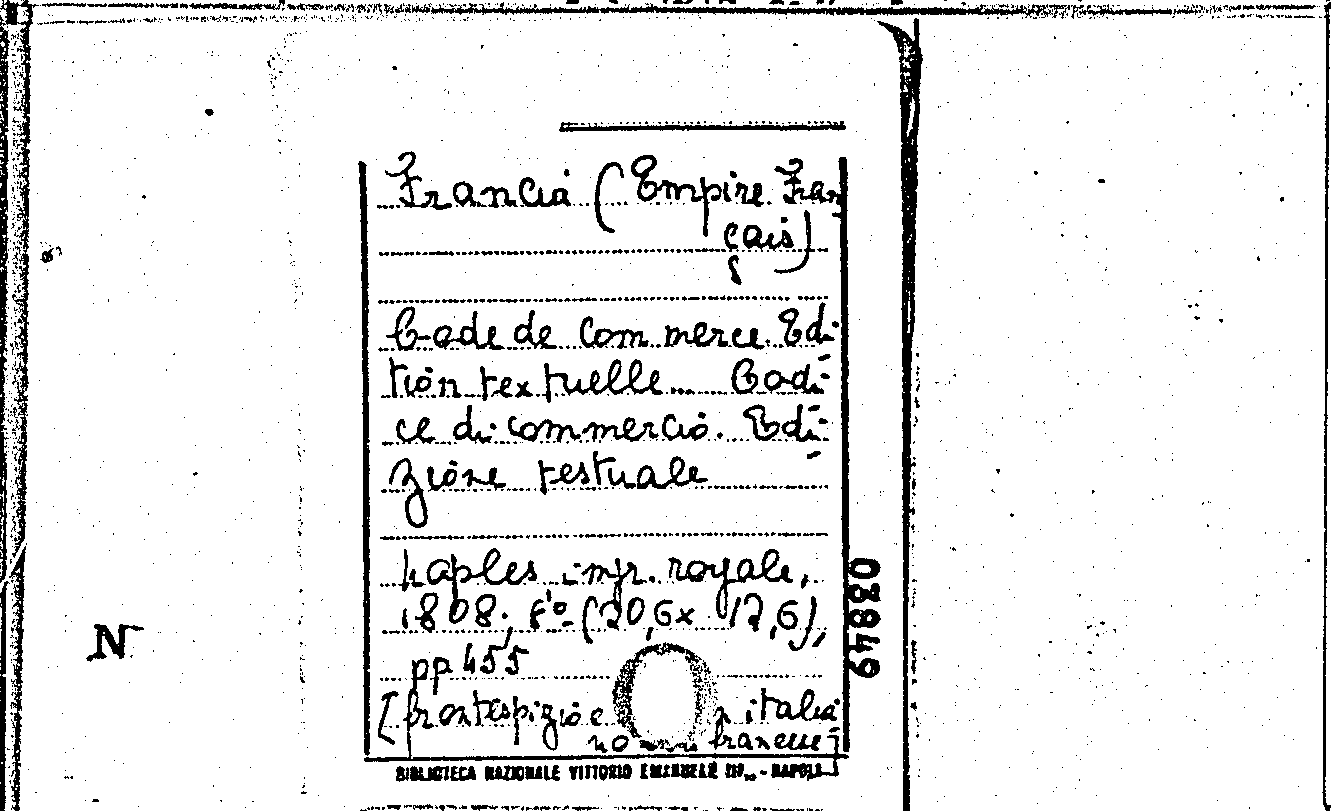 Francia (Empire Fran
çais)
Code de commerce. Edi-
tion textuelle... Codi-
ce di commercio. Edi-
zione testuale
Naples impr. royale,
1808; 8º (20,6x 12,6),
pp 455
[frontespizio e italia
no francese]
BIBLIOTECA NAZIONALE VITTORIO EMANUELE III - NAPOLI
03849
N